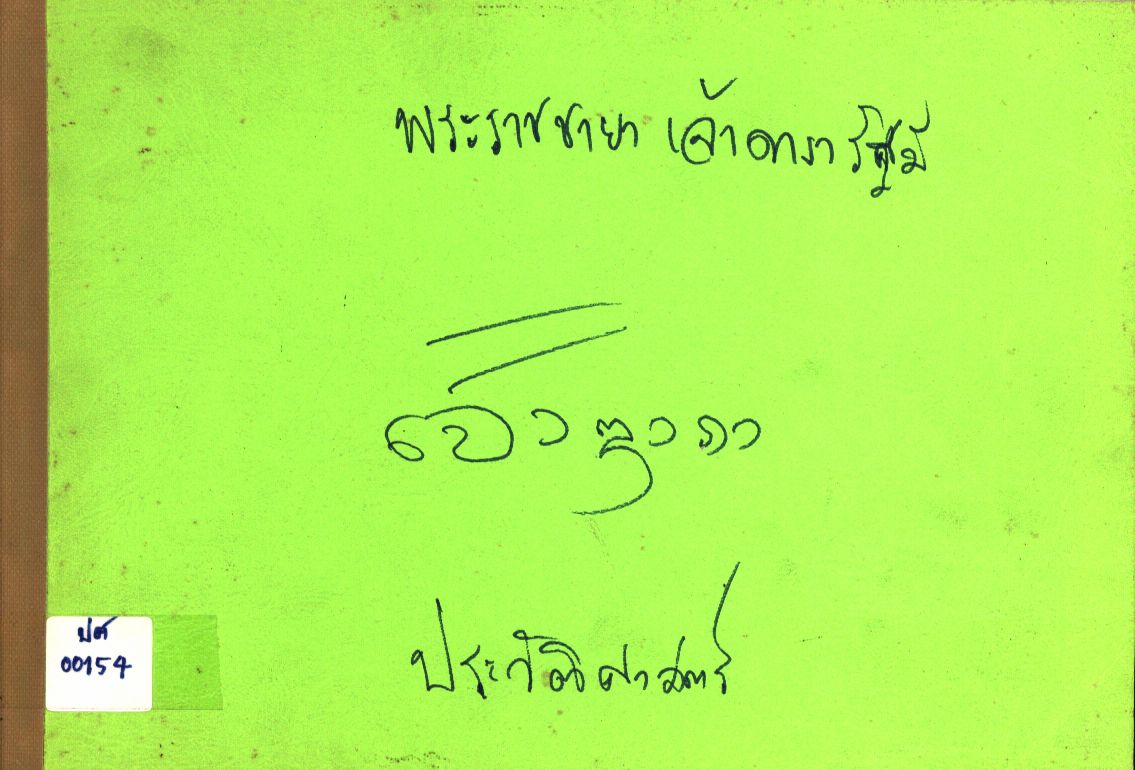 พระราชชายา เจ้าดารารัศมี
ประวัติศาสตร์
ปศ
00154